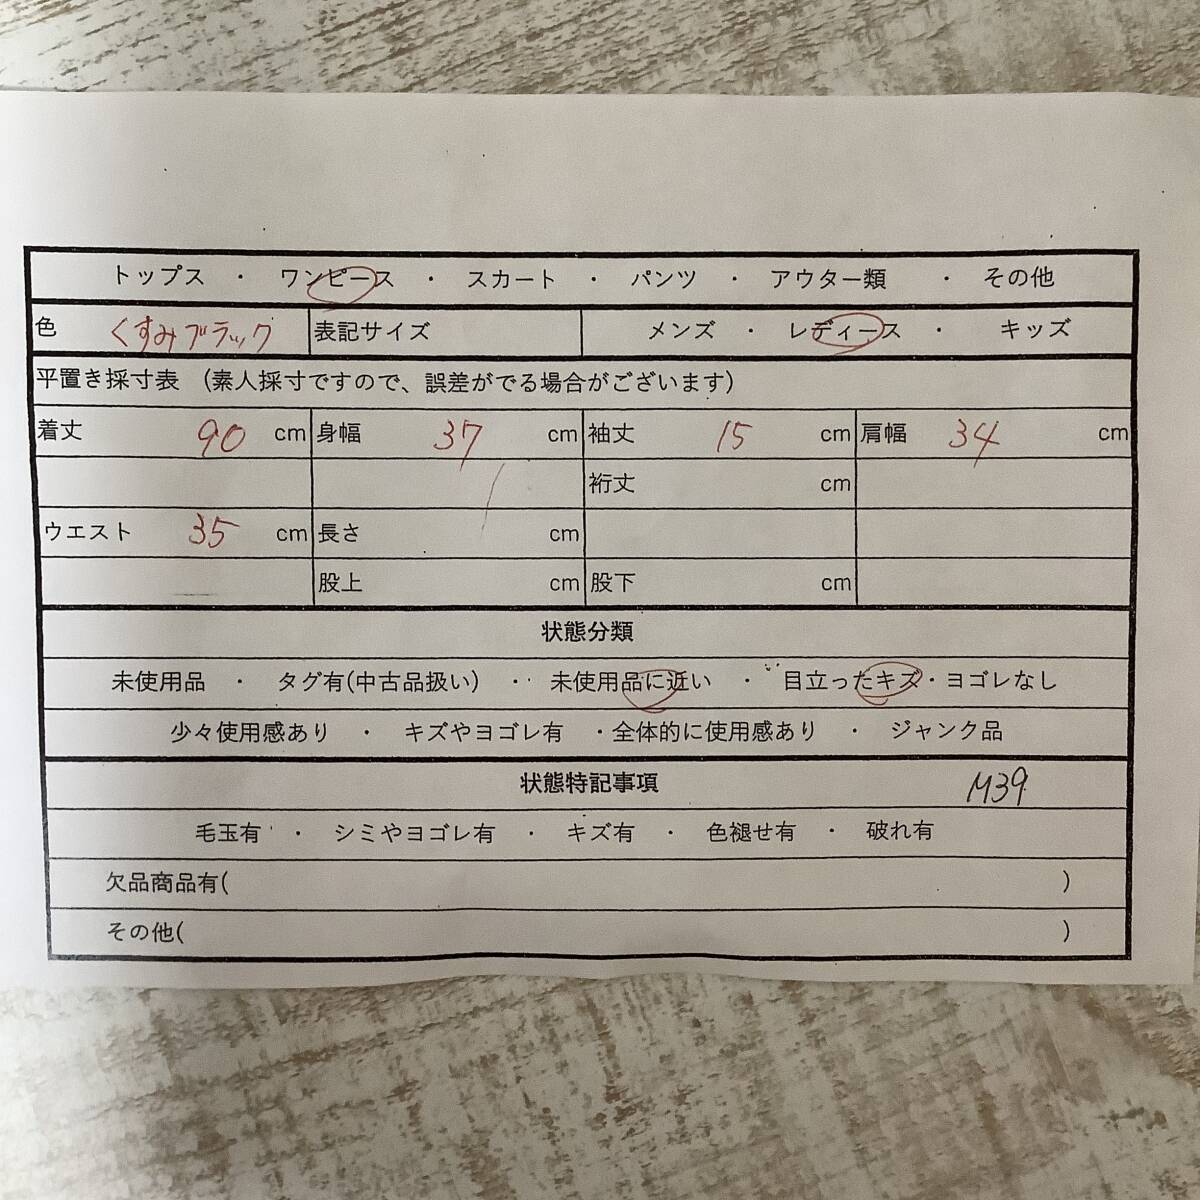 トップス ・ ワンピース ・ スカート ・ パンツ ・ アウター類 ・ その他
色 くすみブラック 表記サイズ メンズ ・ レディース ・ キッズ
平置き採寸表 (素人採寸ですので、誤差がでる場合がございます)
着丈 90 cm 身幅 37 cm 袖丈 15 cm 肩幅 34 cm
裄丈 cm
ウエスト 35 cm 長さ cm
股上 cm 股下 cm
状態分類
未使用品 ・ タグ有(中古品扱い) ・ 未使用品に近い ・ 目立ったキズ・ヨゴレなし
少々使用感あり ・ キズやヨゴレ有 ・全体的に使用感あり ・ ジャンク品
状態特記事項 M39
毛玉有 ・ シミやヨゴレ有 ・ キズ有 ・ 色褪せ有 ・ 破れ有
欠品商品有( )
その他( )